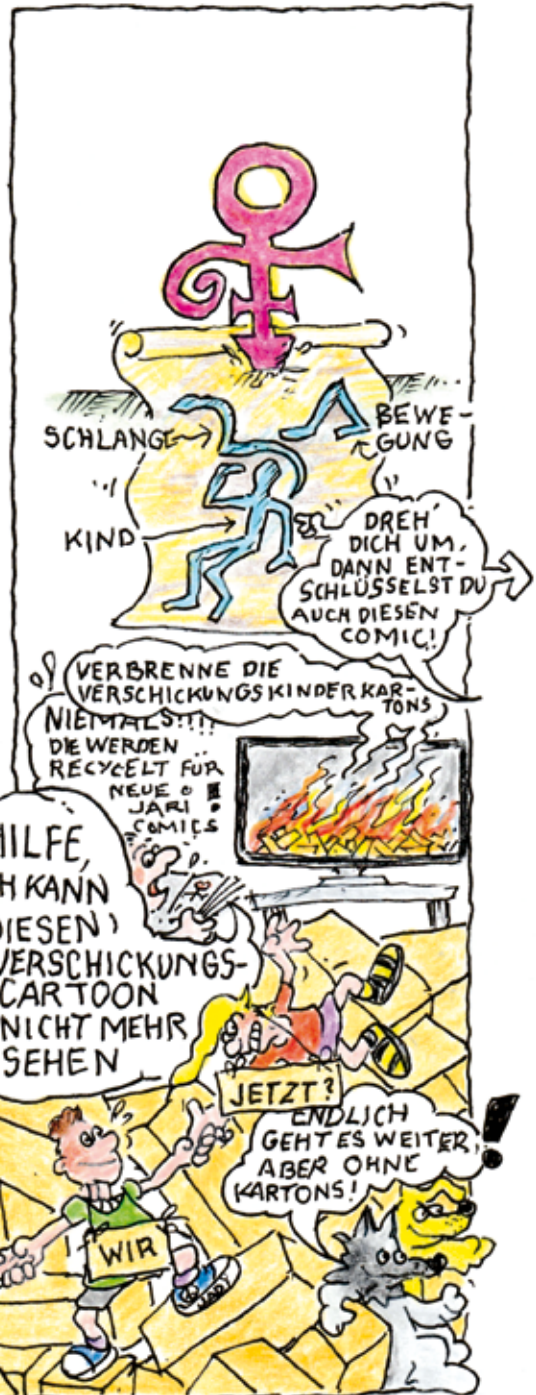 SCHLANGE
BEWE-
GUNG
KIND
DREH'
DICH UM,
DANN ENT-
SCHLÜSSELST DU
AUCH DIESEN
COMIC!
VERBRENNE DIE
VERSCHICKUNGSKINDERKAR-
TONS
NIEMALS!!!!
DIE WERDEN
RECYCELT FÜR
NEUE
JARI
COMICS
HILFE,
KANN
DIESEN
VERSCHICKUNGS-
CARTOON
NICHT MEHR
SEHEN
JETZT?
ENDLICH
GEHT ES WEITER,
ABER OHNE
KARTONS!
WIR
JARI